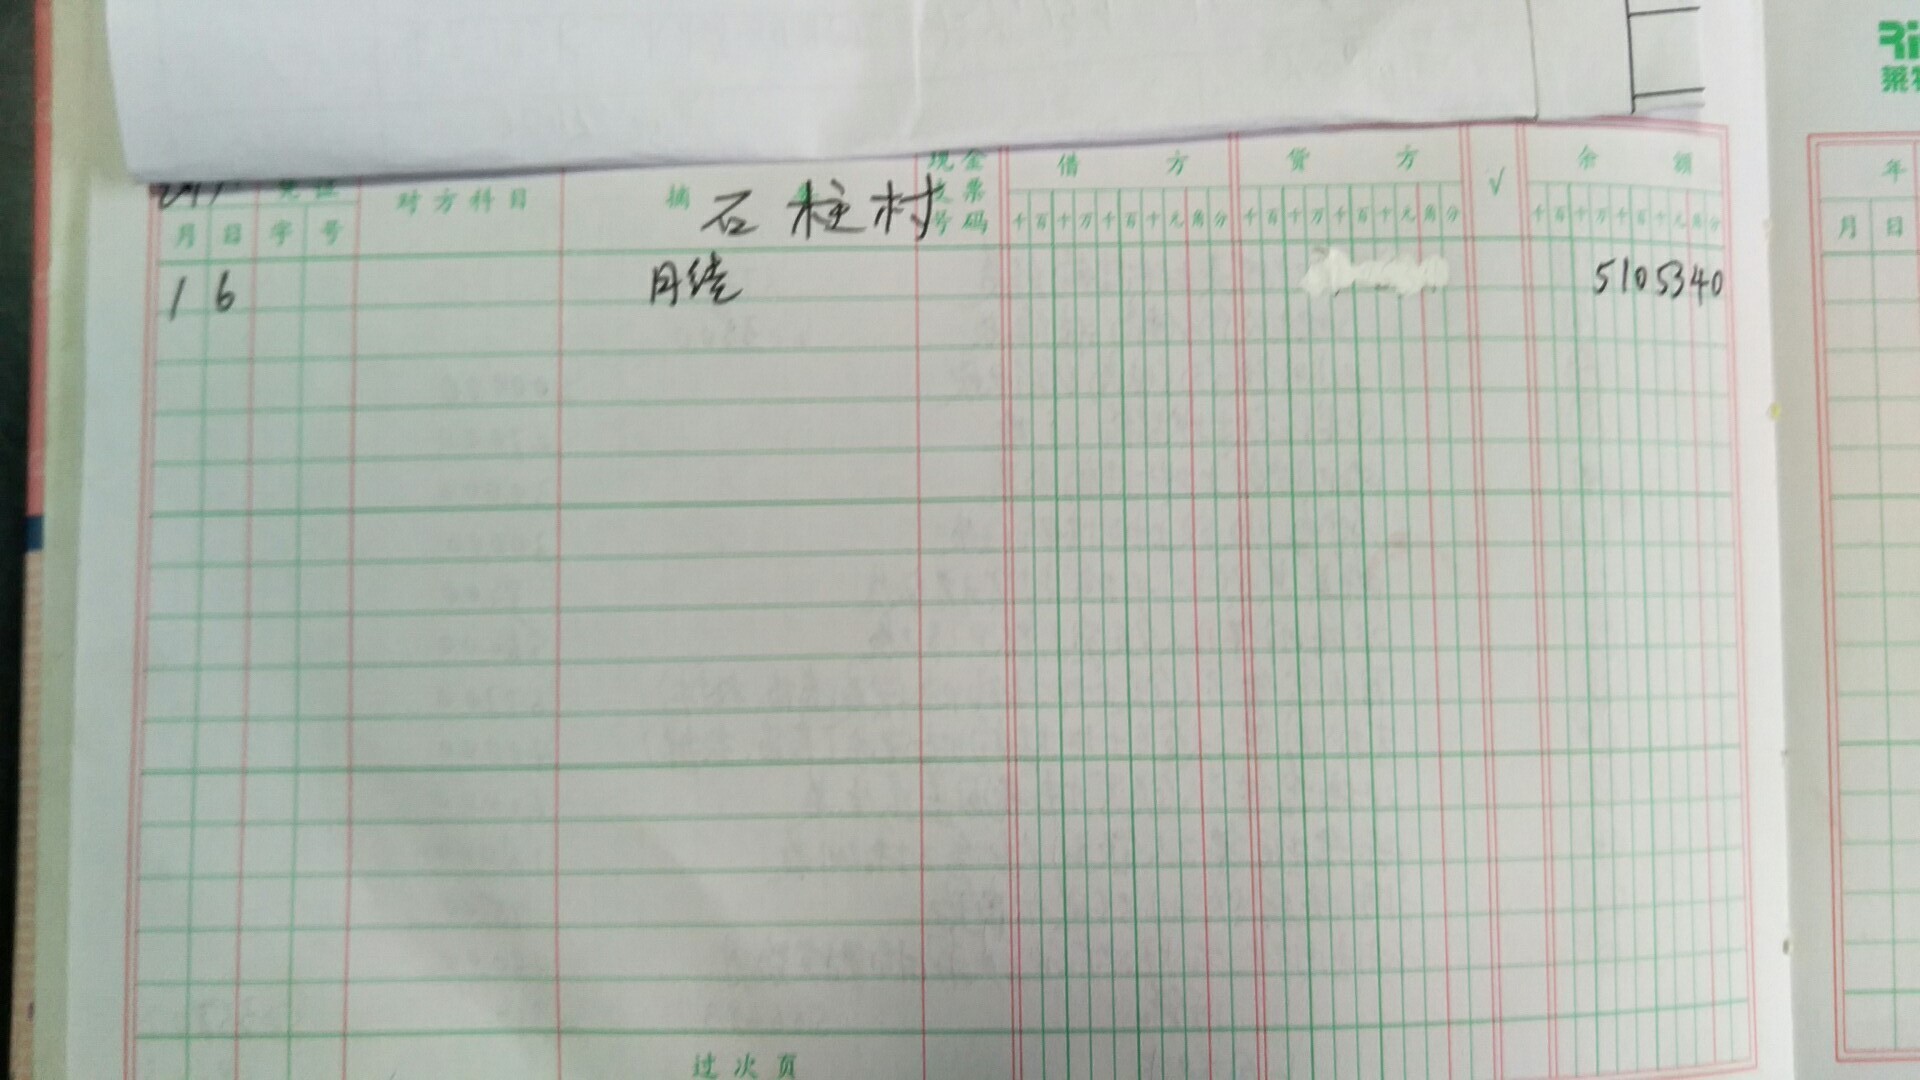 现金 借 方 贷 方 余 额
对方科目 摘 石柱村 支票 √
月 日 字 号 号码 千 百 十 万 千 百 十 元 角 分 千 百 十 万 千 百 十 元 角 分 千 百 十 万 千 百 十 元 角 分
1 6 月结 5105340
过次页
年
月 日